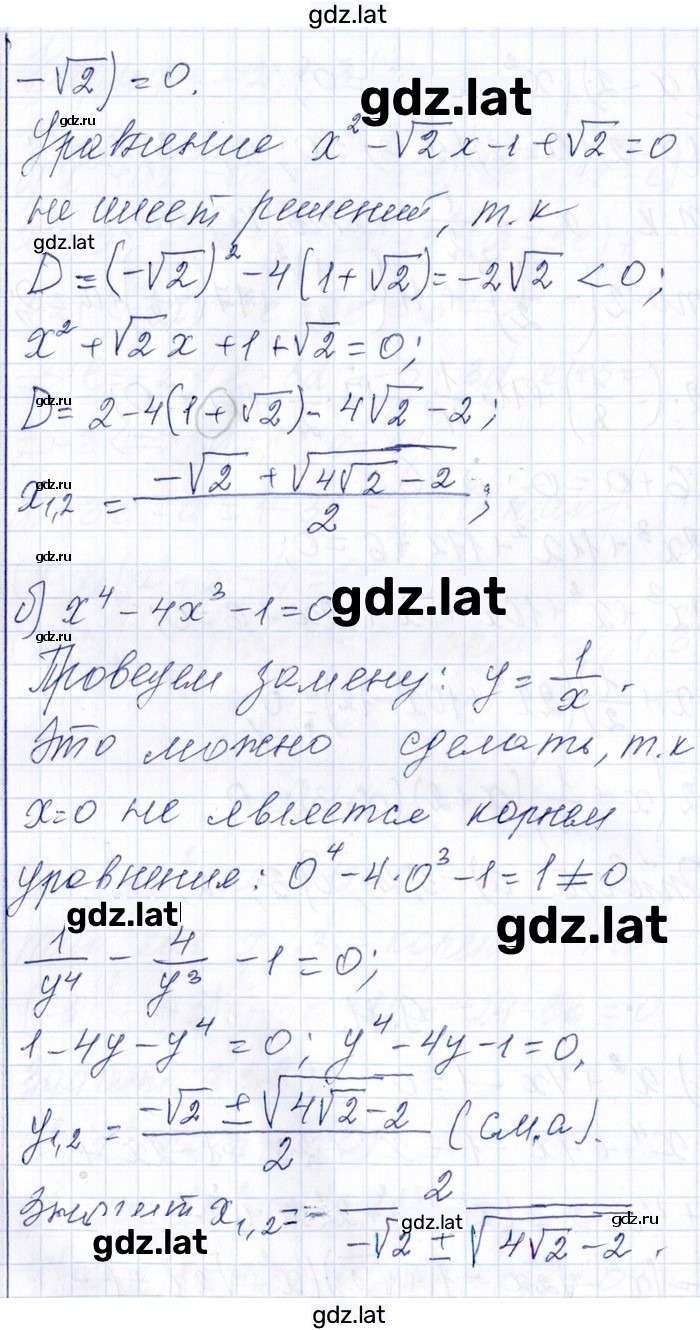 gdz.lat
-√2) = 0.
gdz.ru
gdz.lat
Уравнение x² - √2 x - 1 + √2 = 0
не имеет решений, т.к
gdz.lat
D = (-√2)² - 4(1 + √2) = -2√2 < 0;
gdz.ru
x² + √2 x + 1 + √2 = 0;
gdz.ru
D = 2 - 4(1 + √2) - 4√2 - 2;
x₁,₂ = (-√2 + √(4√2 - 2))/2;
gdz.ru
gdz.ru
б) x⁴ - 4x³ - 1 = 0
gdz.lat
gdz.ru
Проведем замену: y = 1/x.
Это можно сделать, т.к
x=0 не является корнем
уравнения: 0⁴ - 4·0³ - 1 = 1 ≠ 0
gdz.lat
gdz.lat
1/y⁴ - 4/y³ - 1 = 0;
1 - 4y - y⁴ = 0; y⁴ - 4y - 1 = 0,
y₁,₂ = (-√2 ± √(4√2 - 2))/2 (см.а).
Значит x₁,₂ = - 2/(-√2 ± √(4√2 - 2)).
gdz.lat
gdz.ru
gdz.lat
gdz.lat